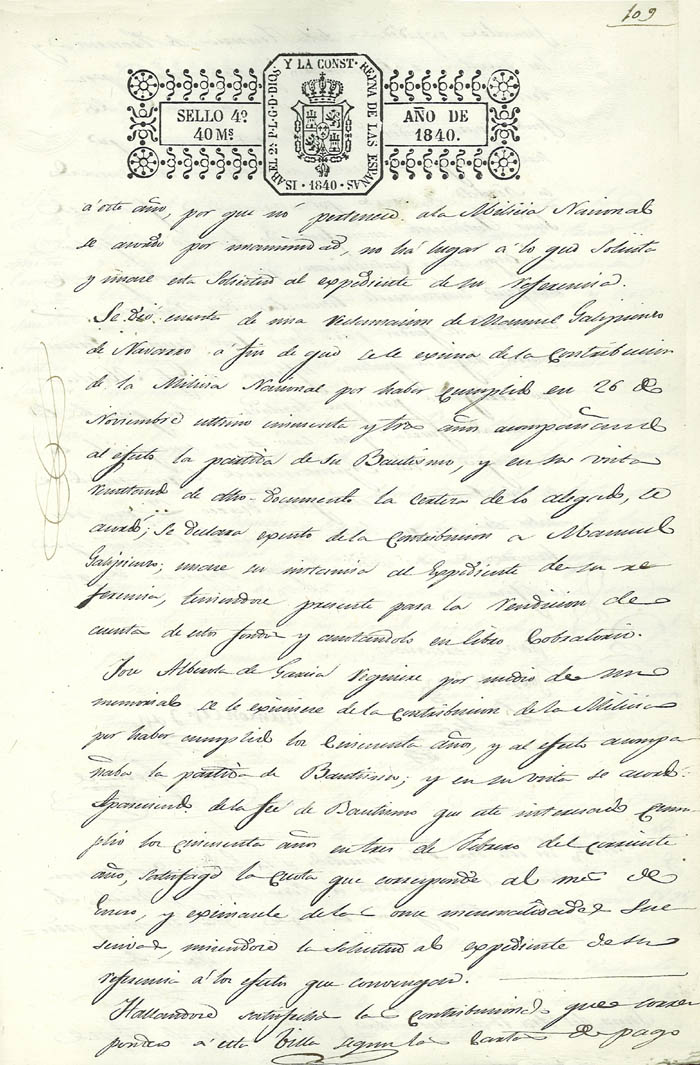 109
ISABEL 2ª P.L.G.D.DIOS Y LA CONST. REYNA DE LAS ESPAÑAS · 1840 ·
SELLO 4º
40 Ms
AÑO DE
1840.
á este año, por que nó pertenece ala Milicia Nacional
se acordó por unanimidad, no há lugar á lo que Solicita
y únase esta Solicitud al expediente de su referencia.
Se dió cuenta de una reclamacion de Manuel Galipienzo
de Navarro á fin de que se le exima de la contribucion
de la Milicia Nacional por haber cumplido en 26 de
Noviembre ultimo cincuenta y tres años acompañando
al efecto la partida de su Bautismo, y en su vista
resultando de dho. documento la certeza de lo alegado, se
acordó; se declara exento de la contribucion a Manuel
Galipienzo; únase su instancia al Expediente de su re
ferencia, teniendose presente para la rendicion de
cuenta de estos fondos y anotándolo en libro Cobratorio.
José Alberola de Garcia requiere por medio de un
memorial se le eximiese de la contribucion de la Milicia
por haber cumplido los Cincuenta años, y al efecto acompa
ñaba la partida de Bautismo; y en su vista se acordó:
Apareciendo de la feé de Bautismo que este interesado cum
plió los cincuenta años en tres de Febrero del corriente
año, satisfaga la cuota que corresponde al mes de
Enero, y eximasele de las once mensualidades suc
sesivas, uniendose la solicitud al expediente de su
referencia á los efectos que convengan.
Hallandose satisfecha la contribucion que corres
ponde á esta Villa segun la Carta de pago